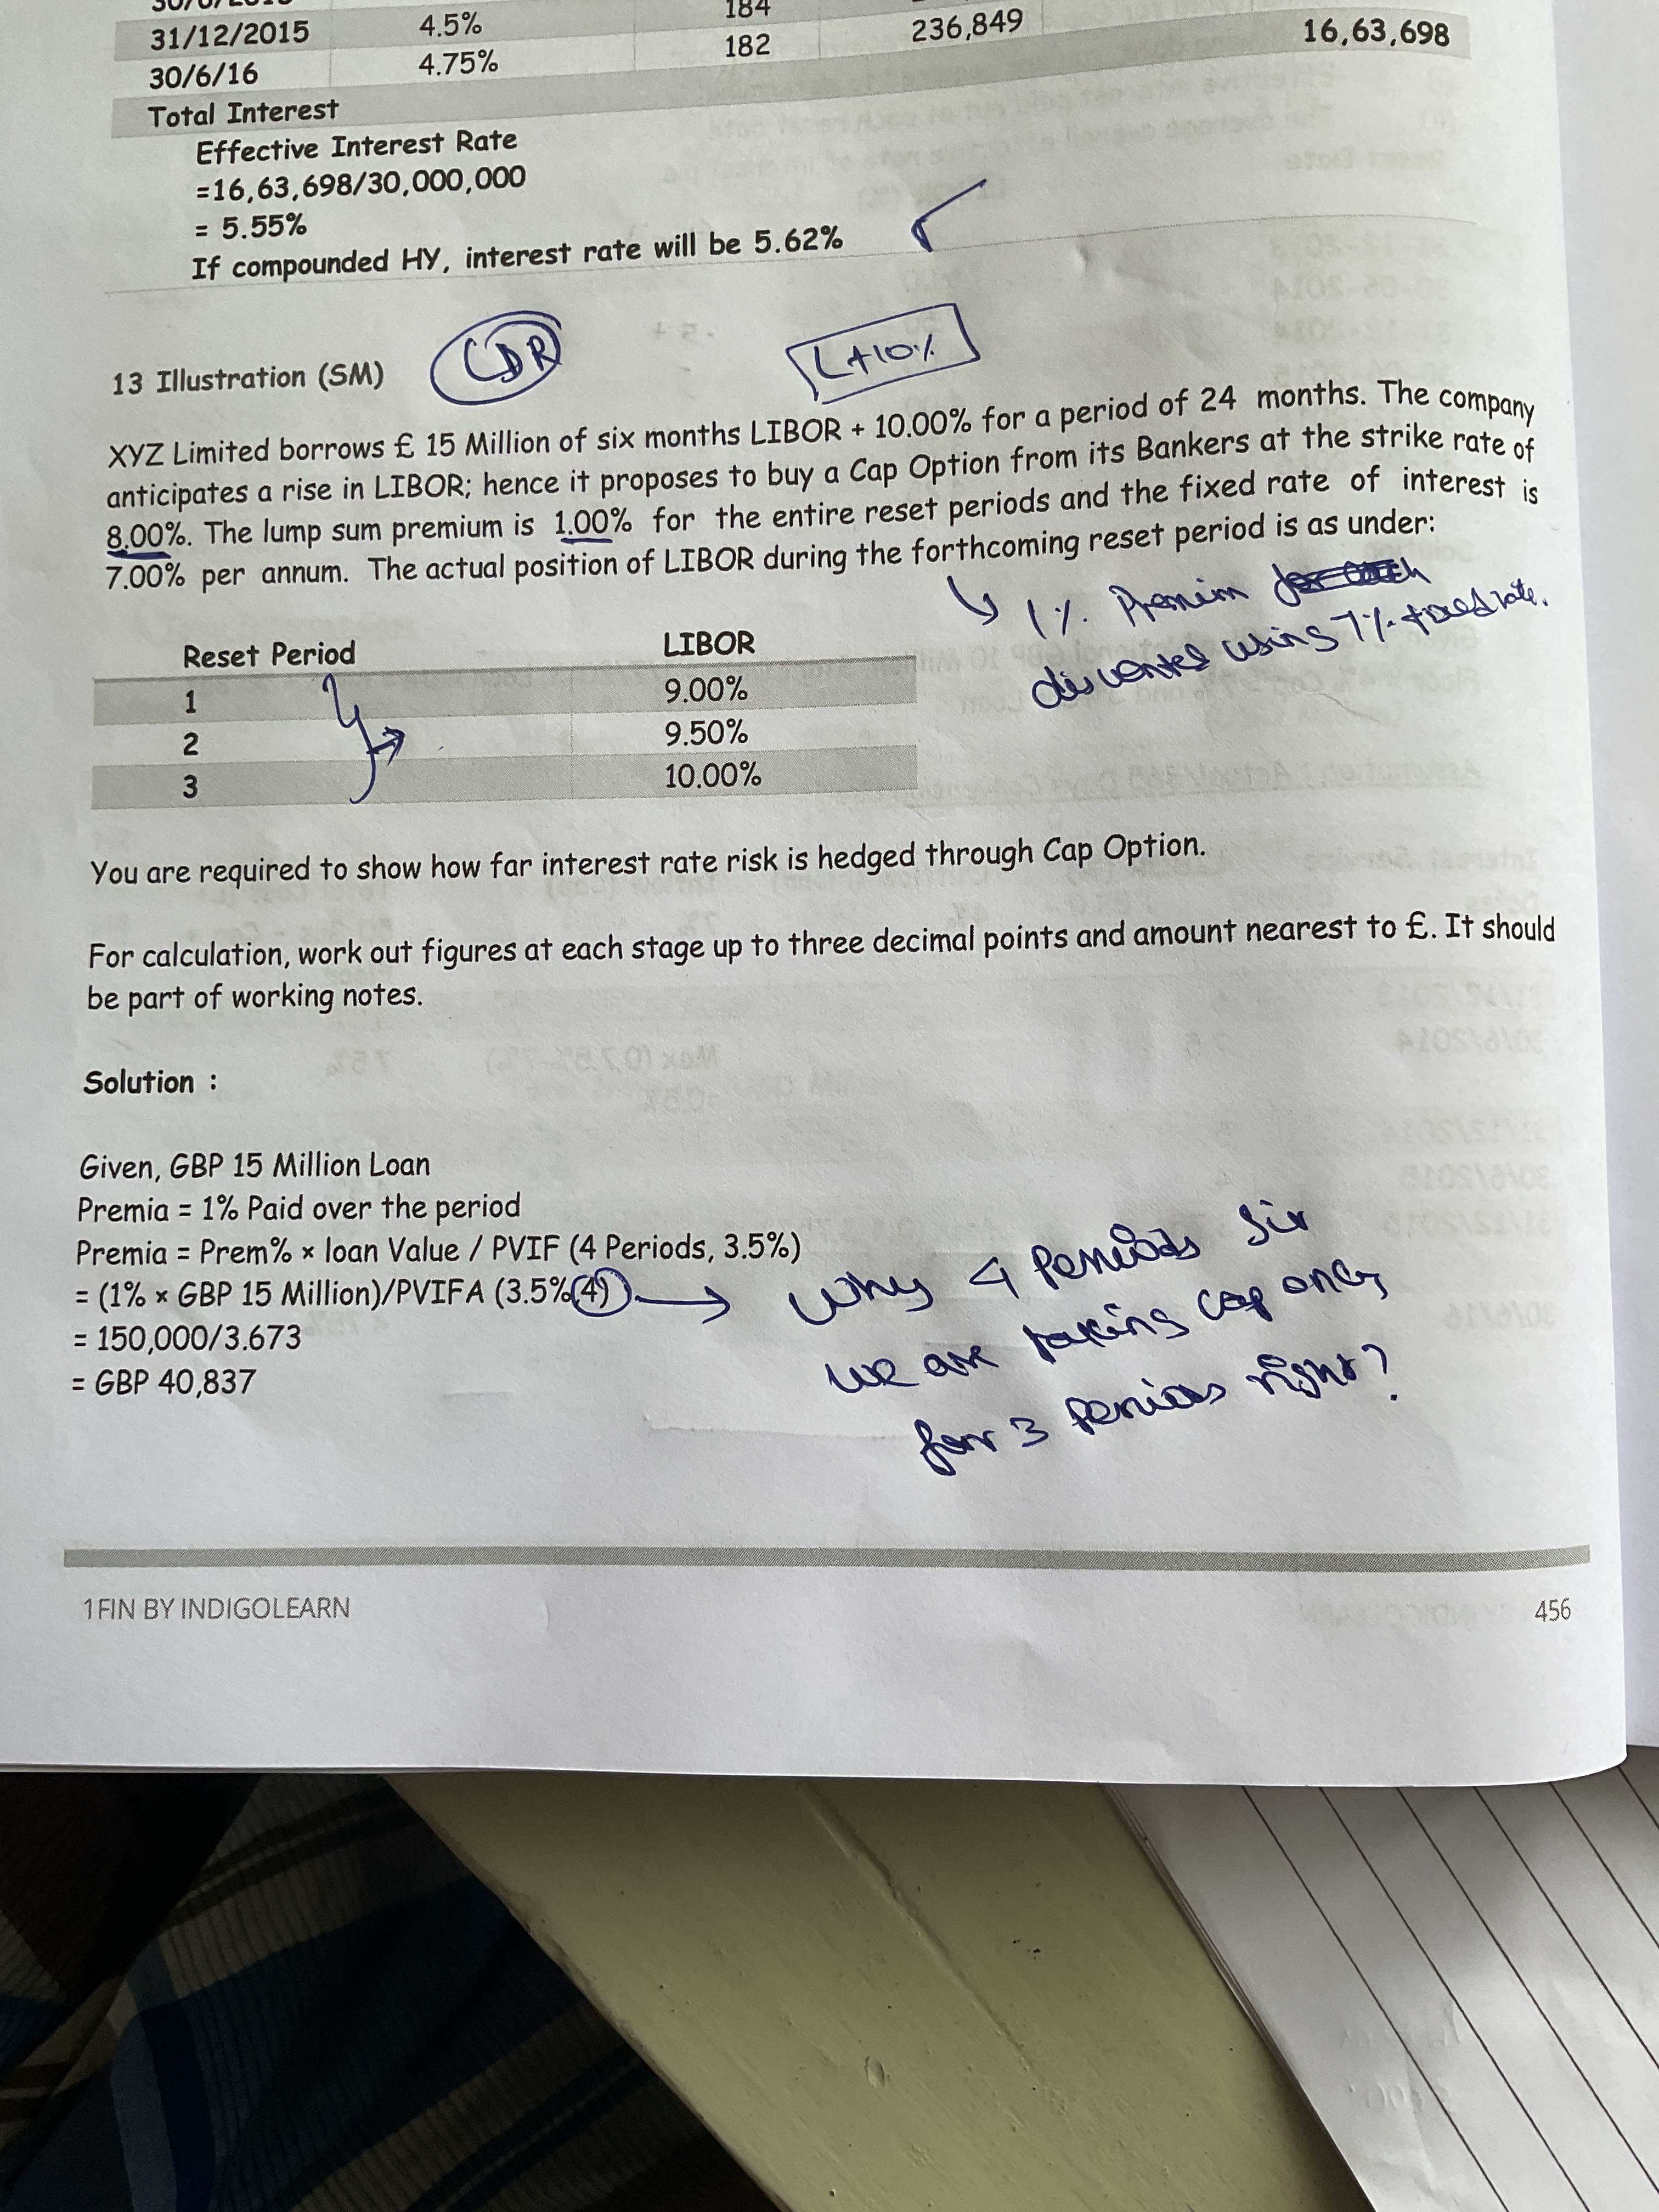 31/12/2015 4.5% 184
30/6/16 4.75% 182 236,849 16,63,698
Total Interest
Effective Interest Rate
=16,63,698/30,000,000
= 5.55%
If compounded HY, interest rate will be 5.62%
13 Illustration (SM) CDR L+10%
XYZ Limited borrows £ 15 Million of six months LIBOR + 10.00% for a period of 24 months. The company
anticipates a rise in LIBOR; hence it proposes to buy a Cap Option from its Bankers at the strike rate of
8.00%. The lump sum premium is 1.00% for the entire reset periods and the fixed rate of interest is
7.00% per annum. The actual position of LIBOR during the forthcoming reset period is as under:
1% Premium
discounted using 7% fixed rate.
Reset Period LIBOR
1 9.00%
2 9.50%
3 10.00%
You are required to show how far interest rate risk is hedged through Cap Option.
For calculation, work out figures at each stage up to three decimal points and amount nearest to £. It should
be part of working notes.
Solution :
Given, GBP 15 Million Loan
Premia = 1% Paid over the period
Premia = Prem% × loan Value / PVIF (4 Periods, 3.5%)
= (1% × GBP 15 Million)/PVIFA (3.5%,4)
= 150,000/3.673
= GBP 40,837
Why 4 Periods Sir
we are taking cap only
for 3 periods right?
1FIN BY INDIGOLEARN 456